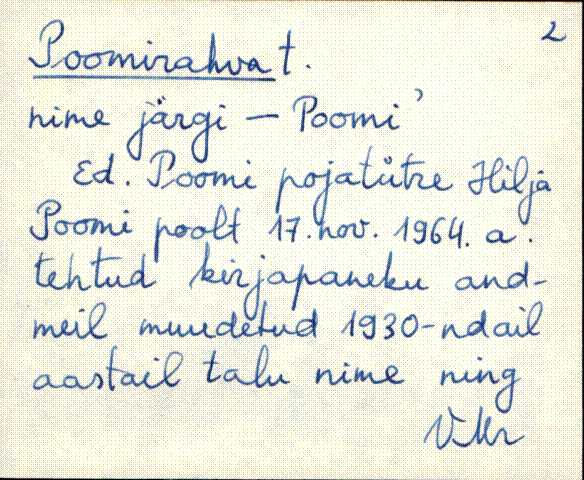 2
Poomirahva t.
nime järgi — Poomi'
Ed. Poomi pojatütre Hilja
Poomi poolt 17. nov. 1964. a.
tehtud kirjapaneku and-
meil muudetud 1930-ndail
aastail talu nime ning